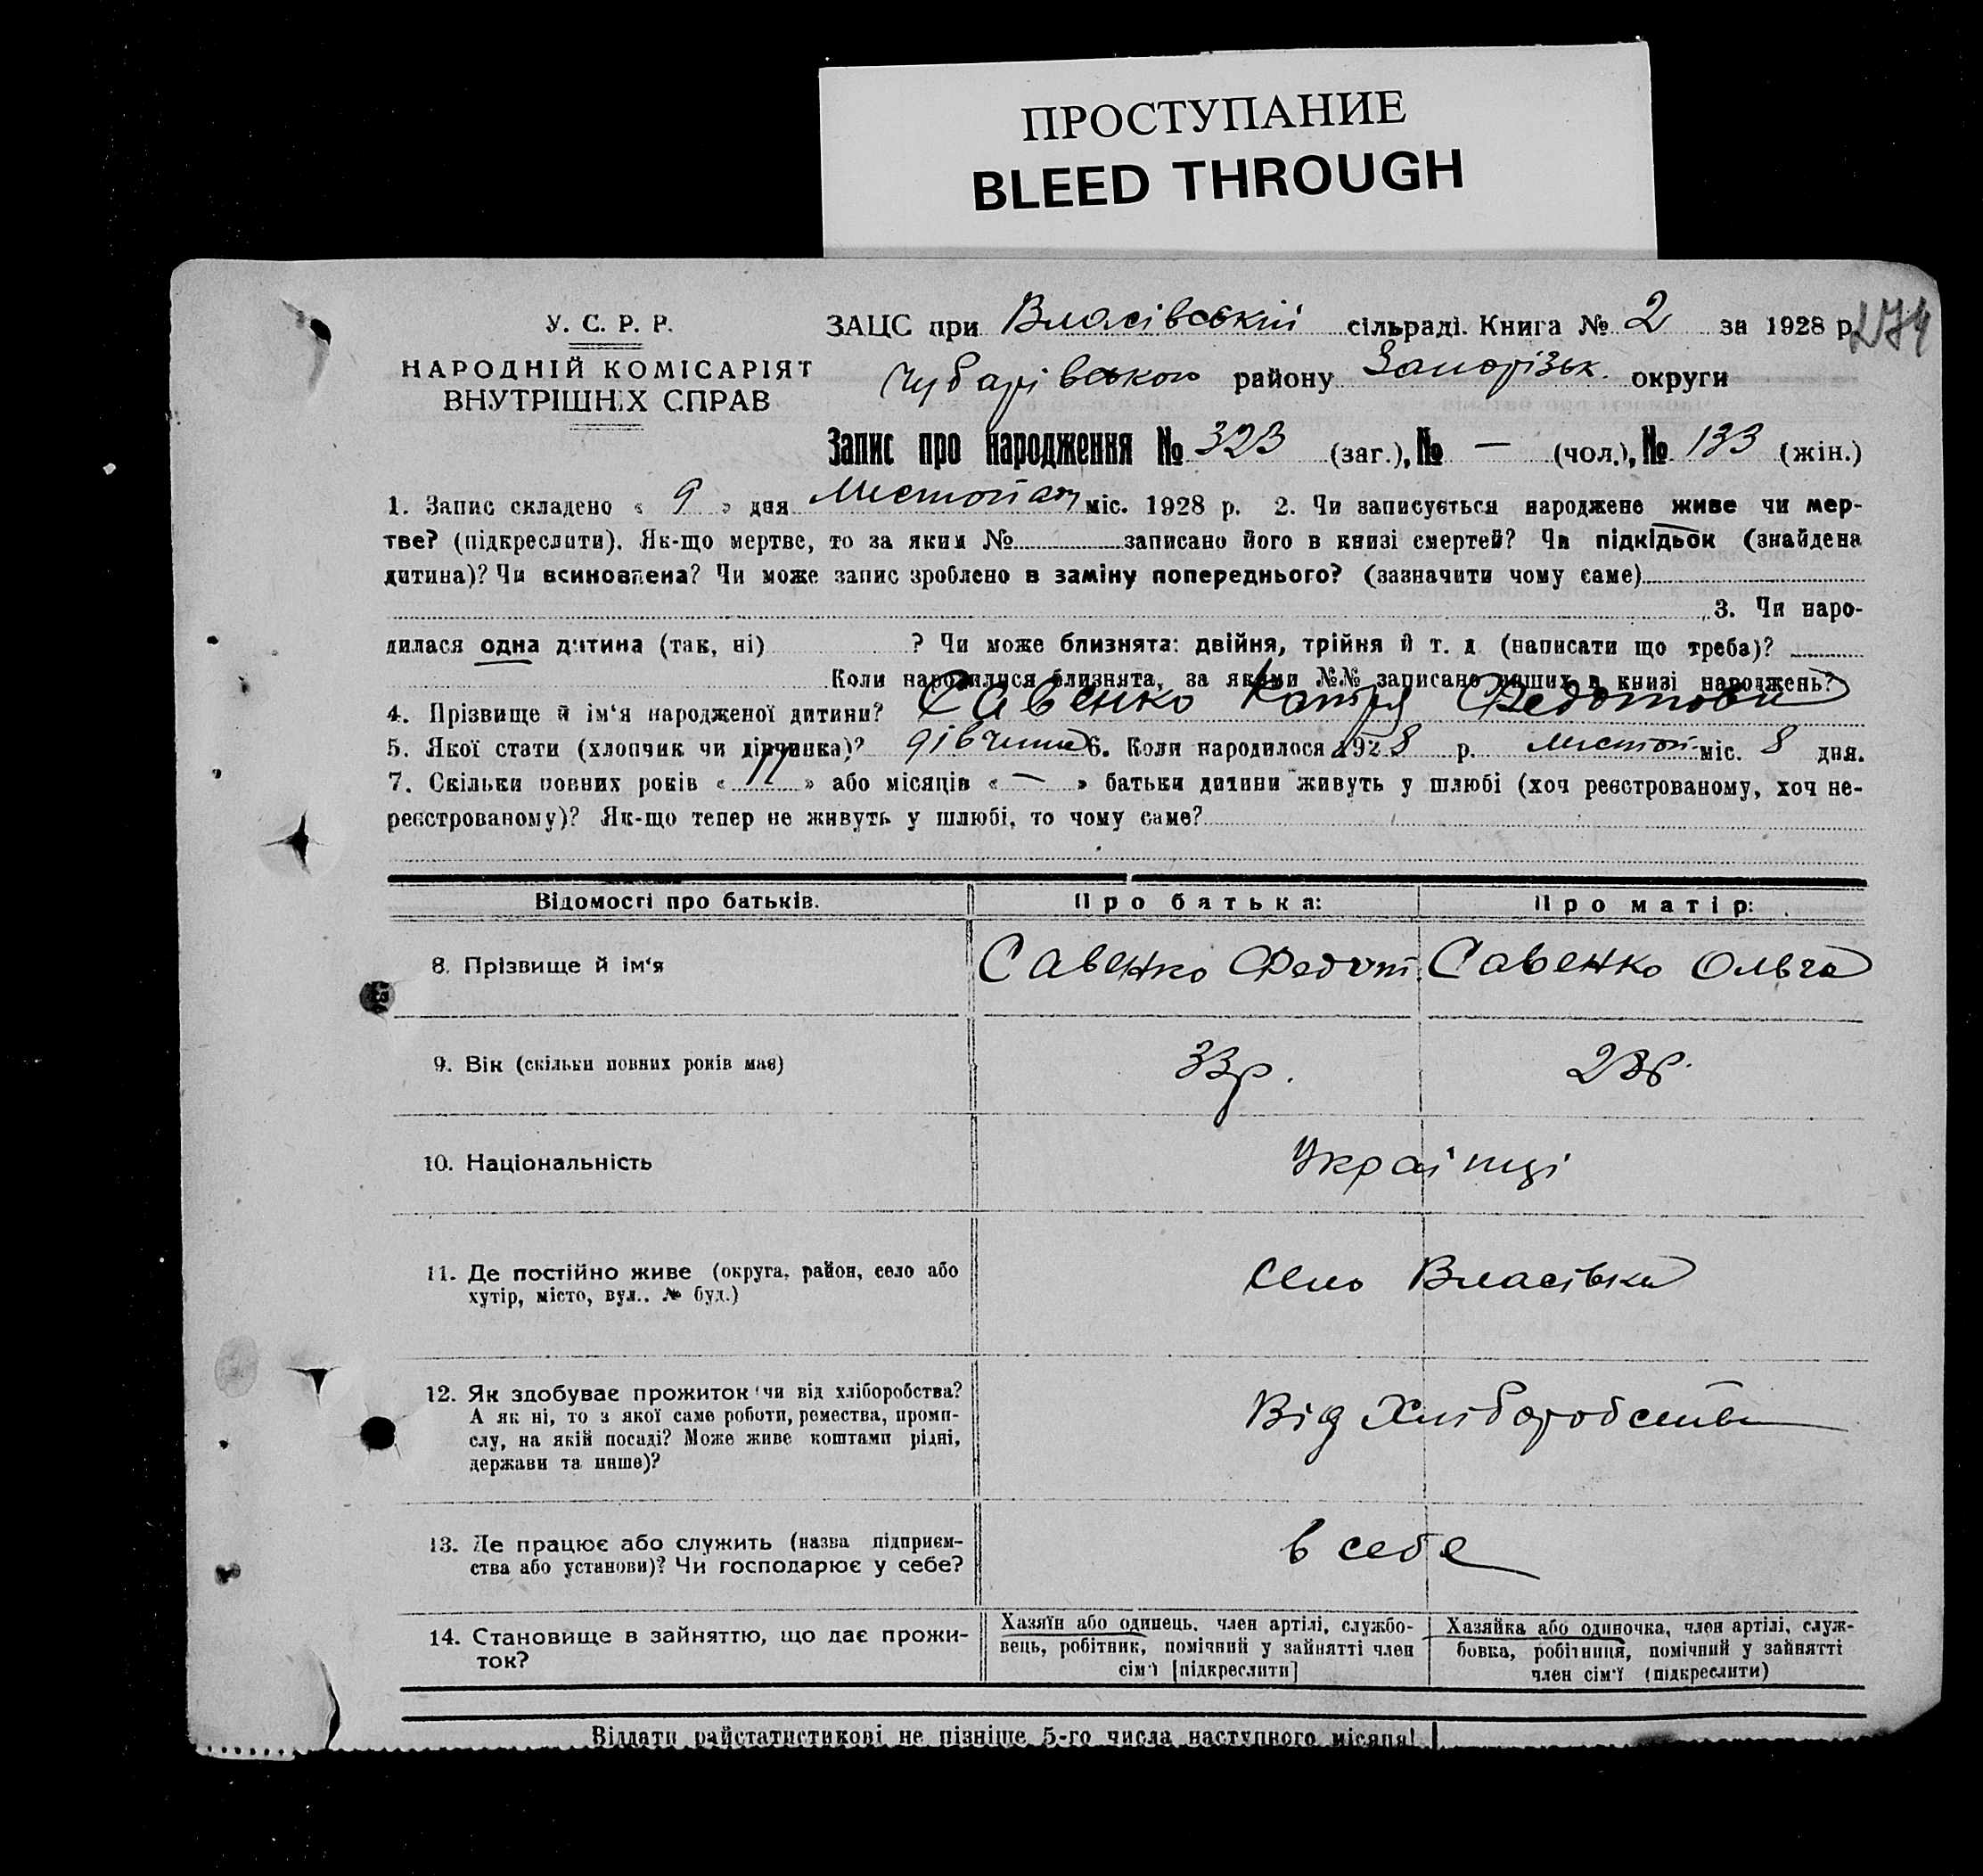 ПРОСТУПАНИЕ
BLEED THROUGH
У. С. Р. Р.
НАРОДНІЙ КОМІСАРІЯТ
ВНУТРІШНІХ СПРАВ
ЗАЦС при Власівській сільраді. Книга № 2 за 1928 р. 274
Чубарівського району Запорізьк. округи
Запис про народження № 323 (заг.), № — (чол.), № 133 (жін.)
1. Запис складено « 9 » дня Листопаду міс. 1928 р. 2. Чи записується народжене живе чи мер-
тве? (підкреслити). Як-що мертве, то за яким № записано його в книзі смертей? Чи підкідьок (знайдена
дитина)? Чи всиновлена? Чи може запис зроблено в заміну попереднього? (зазначити чому саме)
3. Чи наро-
дилася одна дитина (так, ні) ? Чи може близнята: двійня, трійня й т. д (написати що треба)?
Коли народилися близнята, за якими №№ записано инших в книзі народжень?
4. Прізвище й ім‘я народженої дитини? Савенко Катря Федотовна
5. Якої стати (хлопчик чи дівчинка)? дівчина 6. Коли народилося 1928 р. листоп. міс. 8 дня.
7. Скільки повних років « » або місяців « — » батьки дитини живуть у шлюбі (хоч реєстрованому, хоч не-
реєстрованому)? Як-що тепер не живуть у шлюбі, то чому саме?
Відомості про батьків. Про батька: Про матір:
8. Прізвище й ім‘я Савенко Федот. Савенко Ольга
9. Вік (скільки повних років має) 33р. 28р.
10. Національність Українці
11. Де постійно живе (округа, район, село або
хутір, місто, вул.. № буд.)
Село Власівка
12. Як здобуває прожиток чи від хліборобства?
А як ні, то з якої саме роботи, ремества, проми-
слу, на якій посаді? Може живе коштами рідні,
держави та инше)?
Від Хліборобства
13. Де працює або служить (назва підприєм-
ства або установи)? Чи господарює у себе?
в себе
14. Становище в зайняттю, що дає прожи-
ток?
Хазяїн або одинець. член артілі, службо-
вець, робітник, помічний у зайнятті член
сім'ї [підкреслити]
Хазяйка або одиночка, член артілі, служ-
бовка, робітниця, помічний у зайнятті
член сім'ї (підкреслити)
Віддати райстатистикові не пізніше 5-го числа наступного місяця!